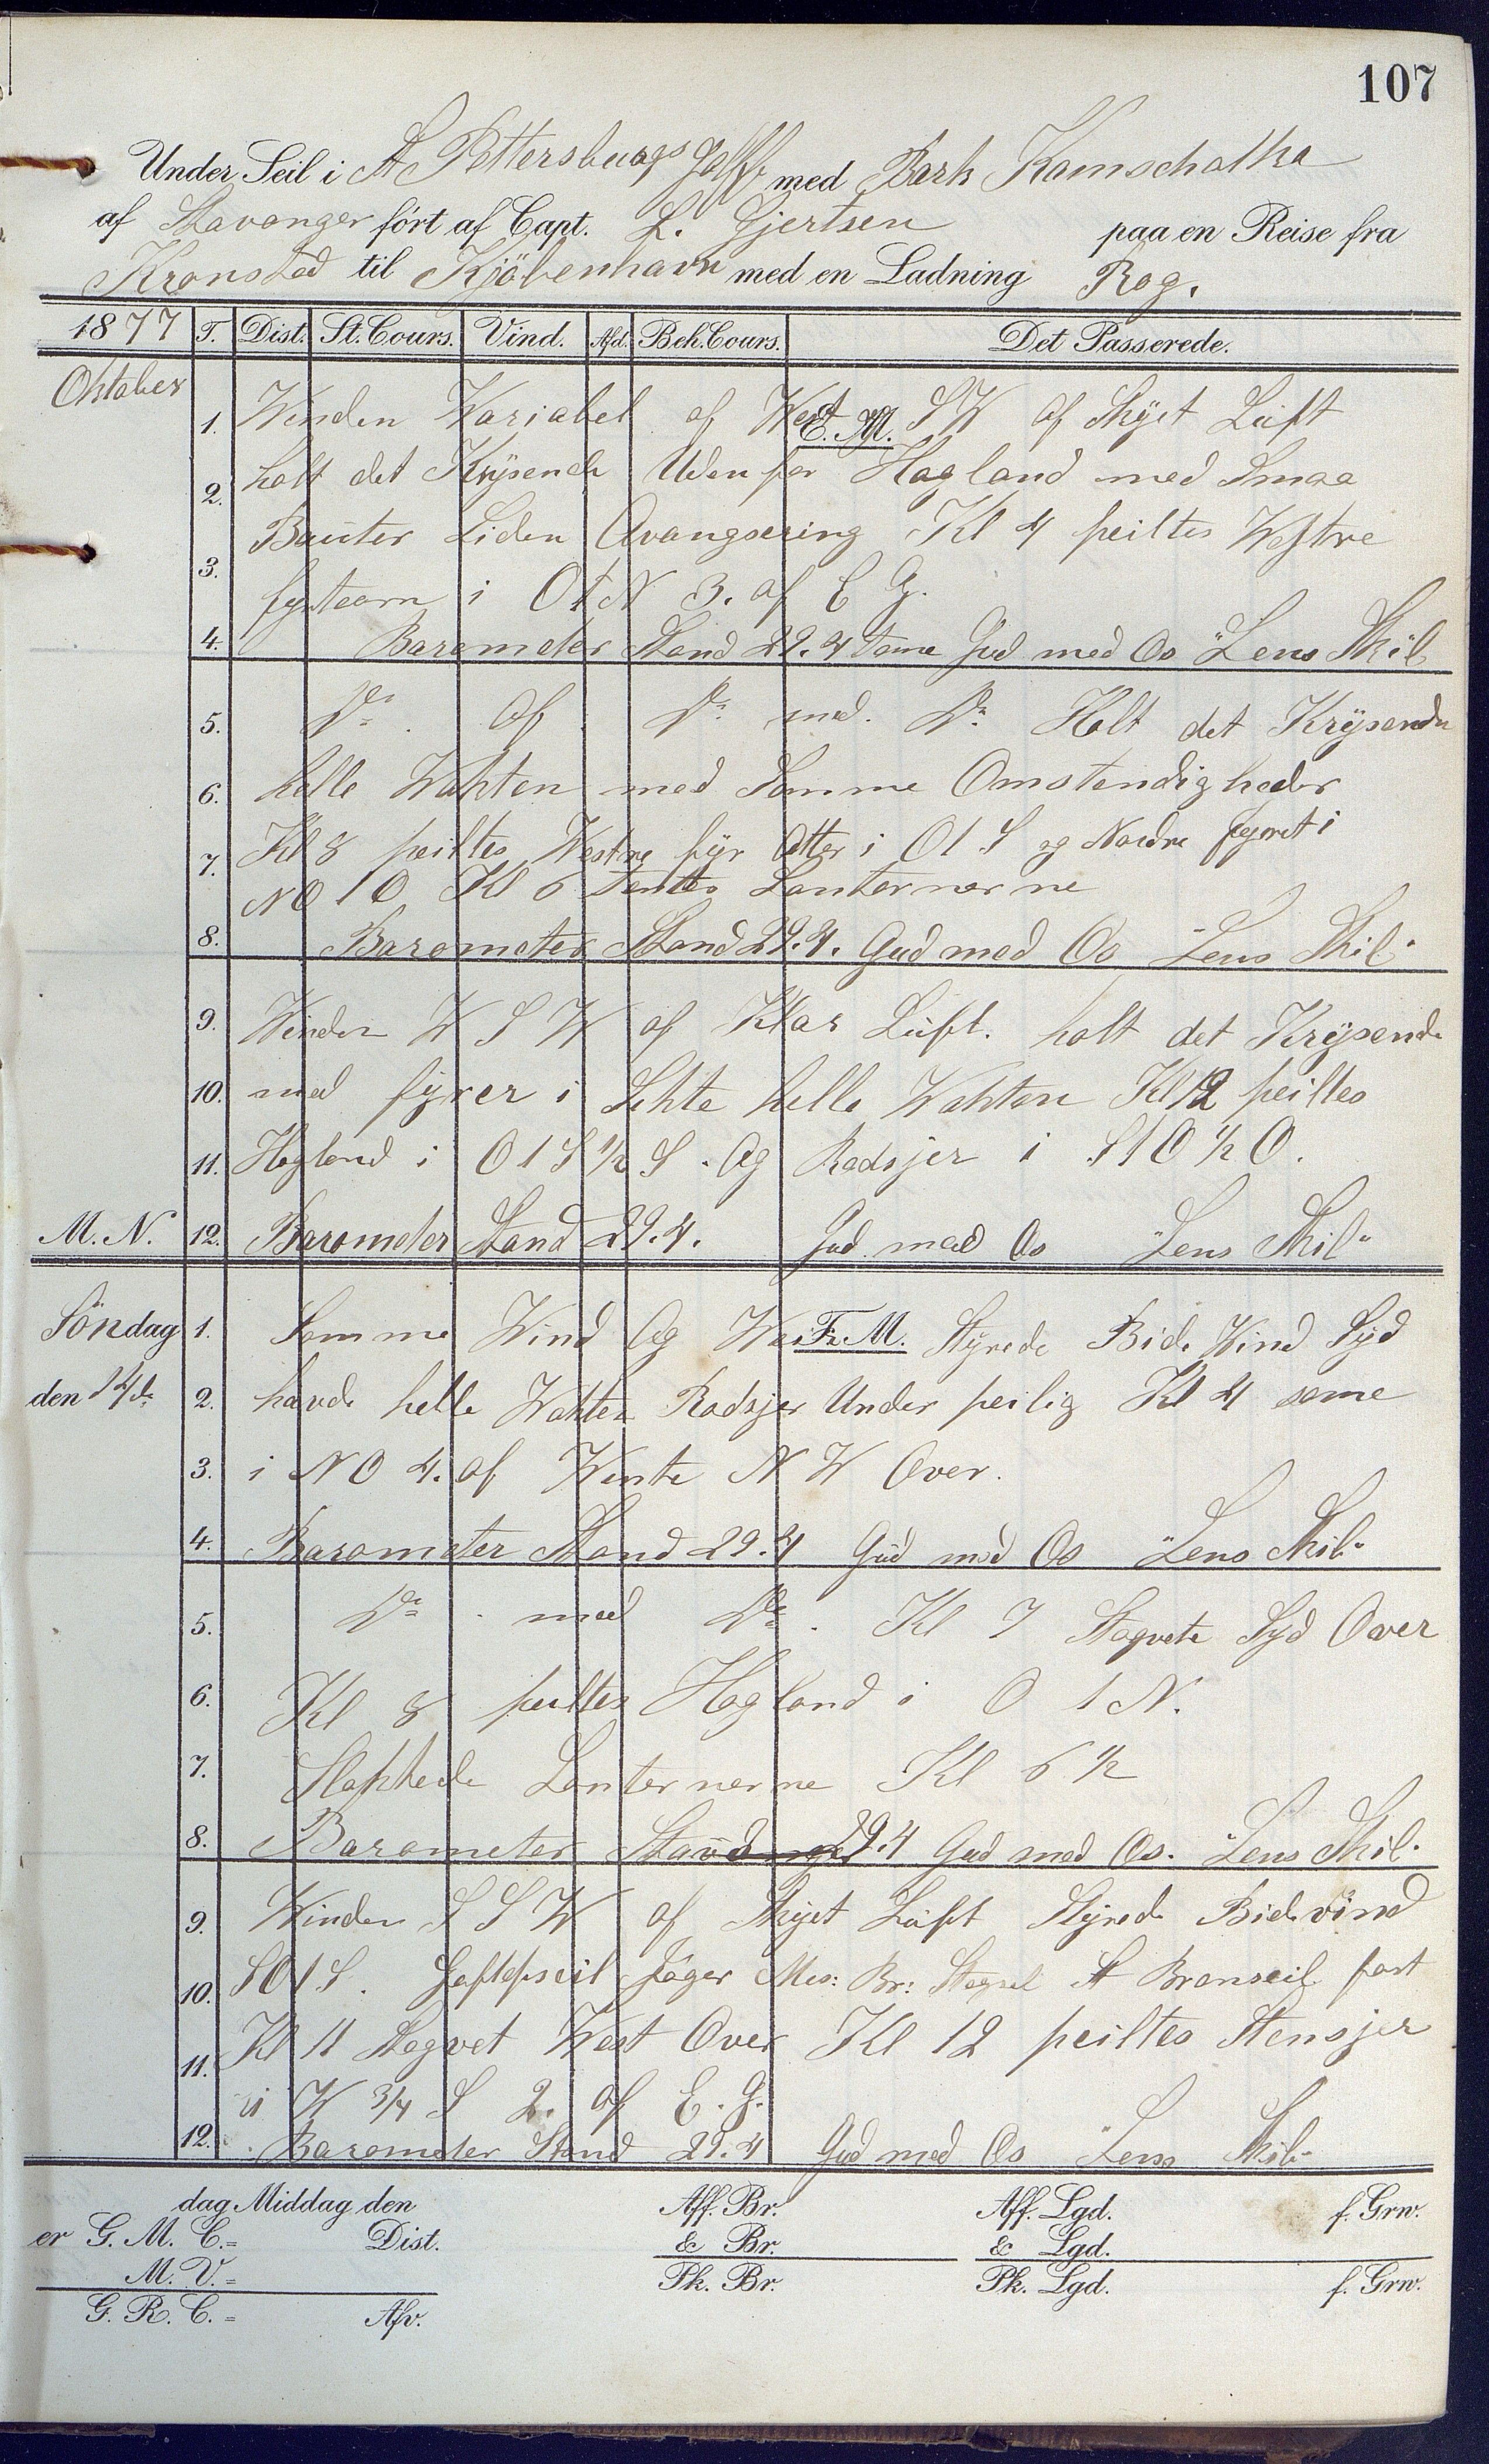 107
Under Seil i St Pettersburgs Golff med Bark Kamschatka
af Stavanger ført af Capt. L. Gjertsen paa en Reise fra
Kronsted til Kjöbenhavn med en Ladning Rog.
1877 T. Dist. St. Cours. Vind. Afd. Beh. Cours. Det Passerede.
Oktober
1. Winden Wariabel af West E. M. SW af Skyet Luft
2. holt det Krÿsende Uden for Hogland med Smaa
Bauter Liden Avangsering Kl 4 peiltes Westre
3. fyrtaarn i O t N 3. af E G.
4. Barometer Stand 29.4 Gud med Os "Lens Skil"
5. Do. Af Do. med. Do. Holt det Krÿsende
6. helle Wakten med Samme Omstendigheder
7. Kl 8 peiltes Westre fÿr Atter i O t S og Nordre fyret i
NO t O Kl 6 Tentes Lanternerne
8. Barometer Stand 29.4. Gud med Os "Lens Skil"
9. Winden W S W af Klar Luft. holt det Krÿsende
10. med fÿrer i Sikte helle Wakten Kl 12 peiltes
11. Hogland i O t S ½ S. Og Rodsjer i S t O ½ O.
M. N. 12. Barometer Stand 29.4. Gud med Os "Lens Skil"
Söndag 1. Samme Wind Og F. M. Styrede Bide Wind Syd
den 14de 2. havde helle Wakten Rodsjer Under peilig Kl 4 same
3. i N O 4. af Wente N W Over.
4. Barometer Stand 29.4 Gud med Os "Lens Skil"
5. Do. med Do. Kl 7 Stagvete Syd Over
6. Kl 8 peiltes Hogland i O t N.
7. Slokkede Lanternerne Kl 6 ½
8. Barometer Stand 29.4 Gud med Os. "Lens Skil"
9. Winden S S W af Skyet Luft Styrede Bidevind
10. SO t S. Gaftopseil Jager Mes: Br: Stagseil St Bramseil fast
11. Kl 11 Stagvet West Over Kl 12 peiltes Stensjer
i W ¾ S 2. af E. G.
12. Barometer Stand 29.4 Gud med Os "Lens Skil"
dag Middag den Aff. Br. Aff. Lgd. f. Grw.
er G. M. C.= Dist. & Br. & Lgd.
M. V.= Pk. Br. Pk. Lgd. f. Grw.
G. R. C.= Afv.